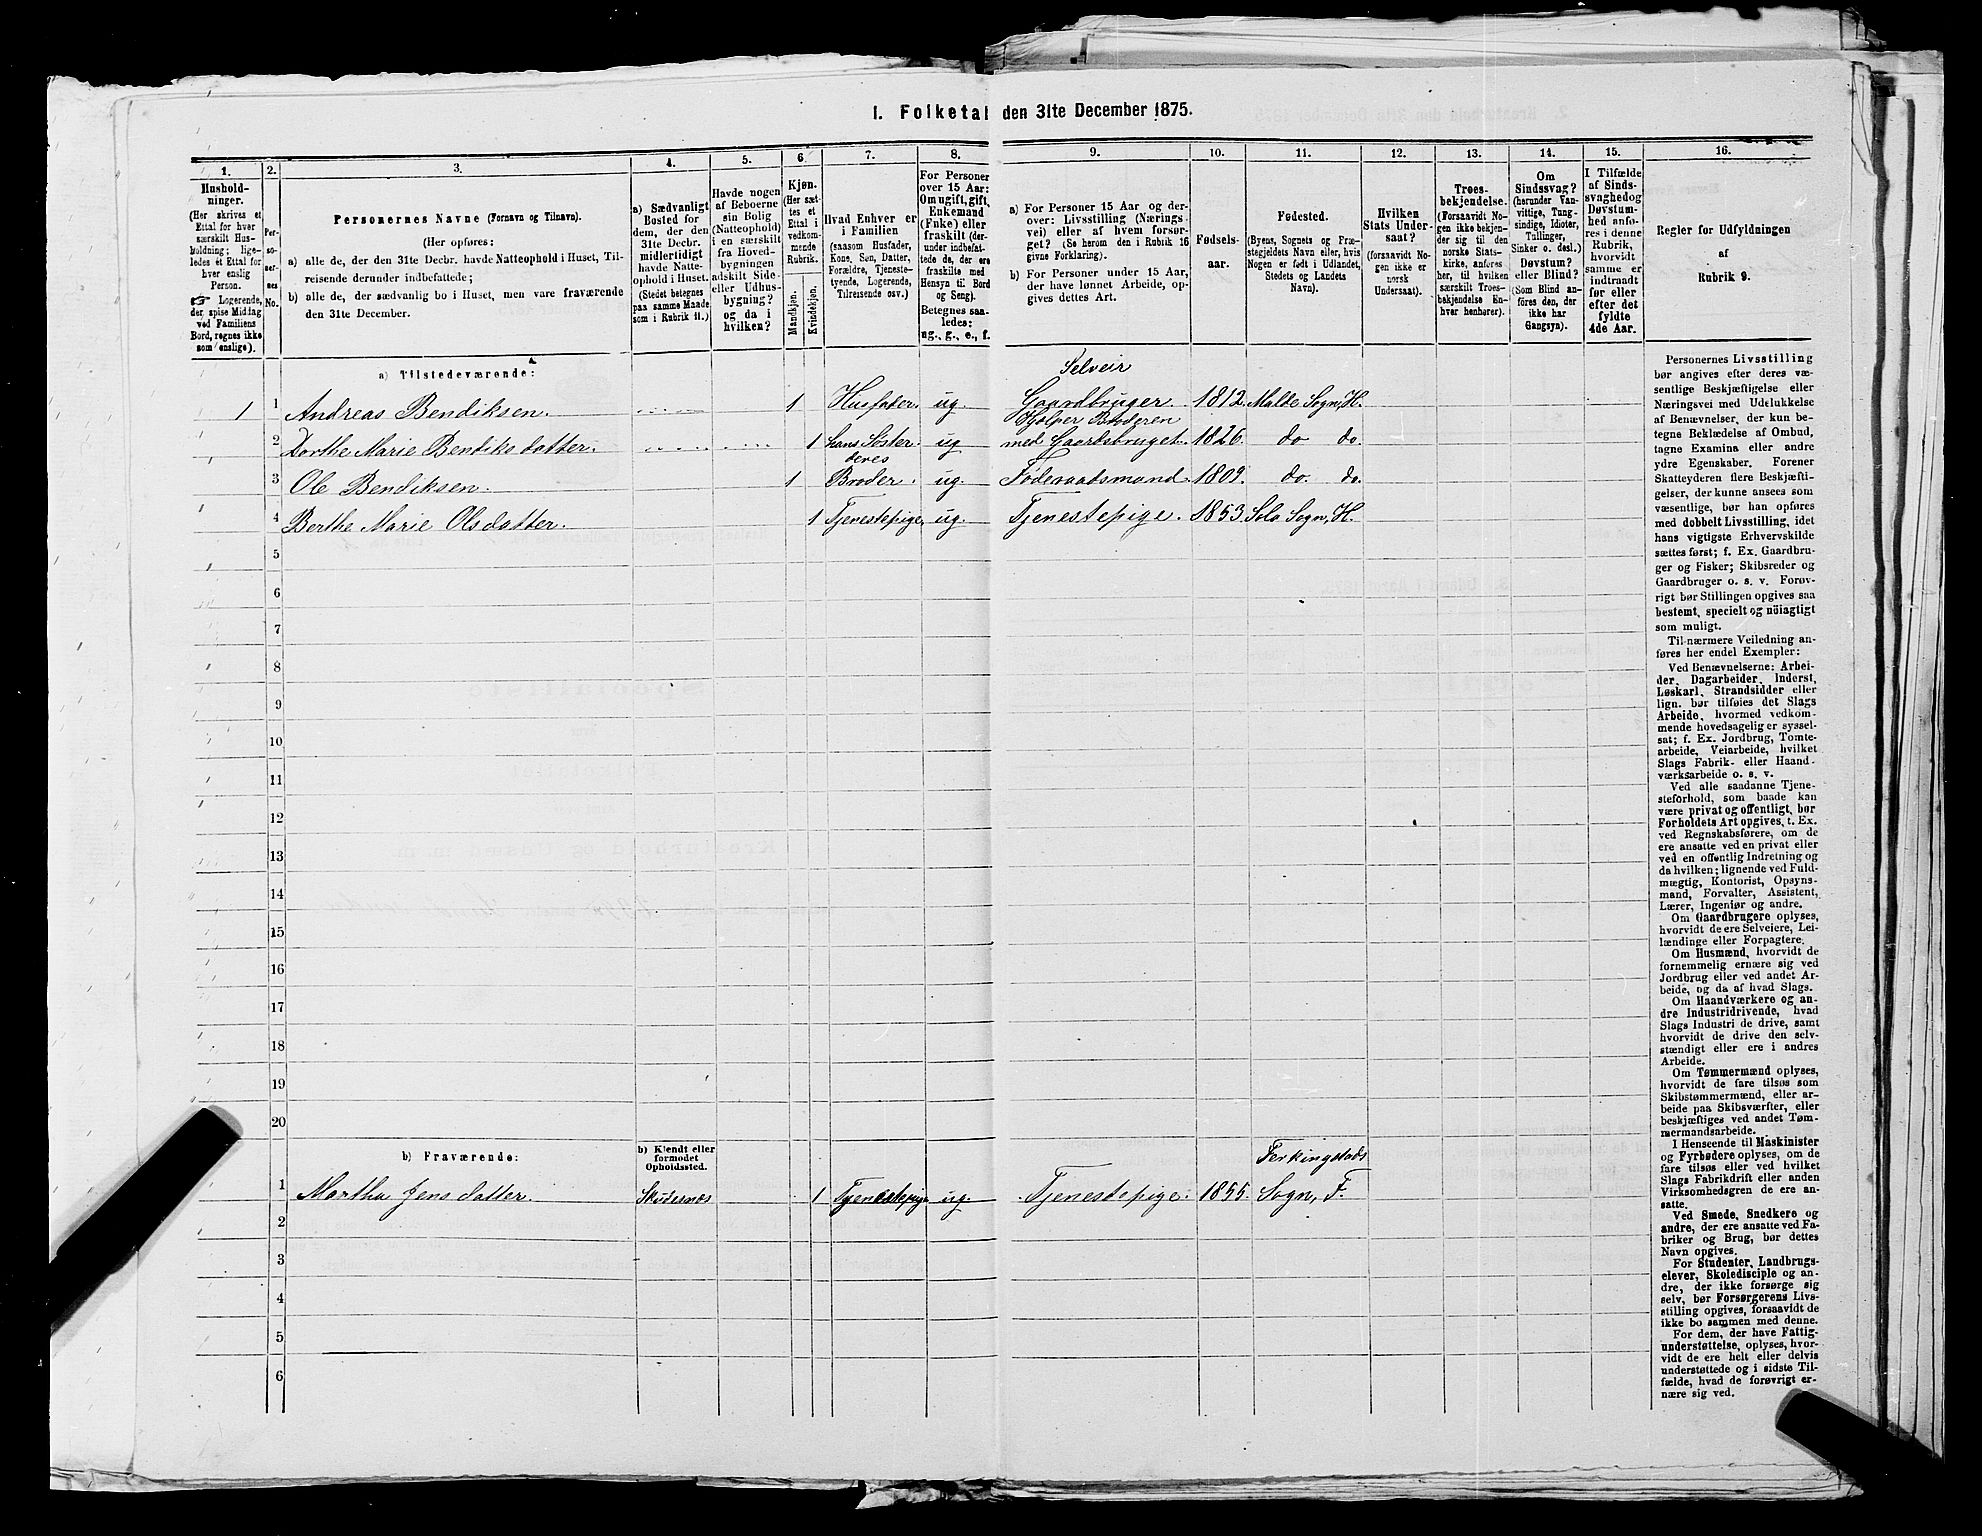 1. Folketal den 31te December 1875.
1. 2. 3. 4. 5. 6. 7. 8. 9. 10. 11. 12. 13. 14. 15. 16.
Hushold-
ninger.
(Her skrives et
Ettal for hver
særskilt Hus-
holdning; lige-
ledes et Ettal for
hver enslig
Person.
☞ Logerende,
der spise Middag
ved Familiens
Bord, regnes ikke
som enslige).
Per-
so-
ner-
nes
No.
Personernes Navne (Fornavn og Tilnavn).
(Her opføres:
a) alle de, der den 31te Decbr. havde Natteophold i Huset, Til-
reisende derunder indbefattede;
b) alle de, der sædvanlig bo i Huset, men vare fraværende
den 31te December.
a) Sædvanligt
Bosted for
dem, der den
31te Decbr.
midlertidigt
havde Natte-
ophold i Huset.
(Stedet betegnes
paa samme Maade
som i Rubrik 11.)
Havde nogen
af Beboerne
sin Bolig
(Natteophold)
i en særskilt
fra Hoved-
bygningen
adskilt Side-
eller Udhus-
bygning?
og da i
hvilken?
Kjøn.
(Her sæt-
tes et
Ettal i
vedkom-
mende
Rubrik.
Mandkjøn.
Kvindekjøn.
Hvad Enhver er
i Familien
(saasom Husfader,
Kone, Søn, Datter,
Forældre, Tjeneste-
tyende, Logerende,
Tilreisende osv.)
For Personer
over 15 Aar:
Om ugift, gift,
Enkemand
(Enke) eller
fraskilt (der-
under indbefat-
tede de, der ere
fraskilte med
Hensyn til Bord
og Seng).
Betegnes saa-
ledes:
ug., g., e., f.
a) For Personer 15 Aar og der-
over: Livsstilling (Nærings-
vei) eller af hvem forsør-
get? (Se herom den i Rubrik 16
givne Forklaring).
b) For Personer under 15 Aar,
der have lønnet Arbeide, op-
gives dettes Art.
Fødsels-
aar.
Fødested.
(Byens, Sognets og Præ-
stegjeldets Navn eller, hvis
Nogen er født i Udlandet,
Stedets og Landets
Navn).
Hvilken
Stats Under-
saat?
(forsaavidt No-
gen ikke er
norsk
Undersaat).
Troes-
bekjendelse.
(Forsaavidt No-
gen ikke bekjen-
der sig til den
norske Stats-
kirke, anføres
her, til hvilken
særskilt Troes-
bekjendelse En-
hver henhører).
Om
Sindssvag?
(herunder Van-
vittige, Tung-
sindige, Idioter,
Tullinger,
Sinker o. desl.)
Døvstum?
eller Blind?
(Som Blind an-
føres den, der
ikke har
Gangsyn).
I Tilfælde
af Sinds-
svaghed og
Døvstum-
hed anfø-
res i denne
Rubrik,
hvorvidt
samme er
indtraadt
før eller
efter det
fyldte
4de Aar.
Regler for Udfyldningen
af
Rubrik 9.
a) Tilstedeværende:
Selveir
1 1 Andreas Bendiksen. 1 Husfader. ug. Gaardbruger 1812. Malde Sogn, H.
Hjelper Broderen
2 Dorthe Marie Bendiksdatter. 1 hans Søster ug med Gaardsbruget. 1826. do do.
deres
3 Ole Bendiksen. 1 Broder. ug. Føderaadsmand. 1809. do. do.
4 Berthe Marie Olsdatter. 1 Tjenestepige, ug. Tjenestepige. 1853. Sola Sogn, H.
5
6
7
8
9
10
11
12
13
14
15
16
17
18
19
20
b) Fraværende:
b) Kjendt eller
formodet
Opholdssted.
Ferkingstads
1 Martha Jensdatter. Skudesnæs 1 Tjenestepige ug. Tjenestepige. 1855. Sogn, F.
2
3
4
5
6
Personernes Livsstilling
bør angives efter deres væ-
sentlige Beskjæftigelse eller
Næringsvei med Udelukkelse
af Benævnelser, der kun be-
tegne Beklædelse af Ombud,
tagne Examina eller andre
ydre Egenskaber. Forener
Skatteyderen flere Beskjæfti-
gelser, der kunne ansees som
væsentlige, bør han opføres
med dobbelt Livsstilling, idet
hans vigtigste Erhvervskilde
sættes først; f. Ex. Gaardbru-
ger og Fisker; Skibsreder og
Gaardbruger o. s. v. Forøv-
rigt bør Stillingen opgives saa
bestemt, specielt og nöiagtigt
som muligt.
Til nærmere Veiledning an-
føres her endel Exempler:
Ved Benævnelserne: Arbei-
der, Dagarbeider, Inderst,
Løskarl, Strandsidder eller
lign. bør tilføies det Slags
Arbeide, hvormed vedkom-
mende hovedsagelig er syssel-
sat; f. Ex. Jordbrug, Tomte-
arbeide, Veiarbeide, hvilket
Slags Fabrik- eller Haand-
værksarbeide o. s. v.
Ved alle saadanne Tjene-
steforhold, som baade kan
være privat og offentligt, bør
Forholdets Art opgives, t. Ex.
ved Regnskabsførere, om de
ere ansatte ved en privat eller
ved en offentlig Indretning og
da hvilken; lignende ved Fuld-
mægtig, Kontorist, Opsyns-
mand, Forvalter, Assistent,
Lærer, Ingeniør og andre.
Om Gaardbrugere oplyses,
hvorvidt de ere Selveiere, Lei-
lændinge eller Forpagtere.
Om Husmænd, hvorvidt de
fornemmelig ernære sig ved
Jordbrug eller ved andet Ar-
beide, og da af hvad Slags.
Om Haandværkere og an-
dre Industridrivende, hvad
Slags Industri de drive, samt
hvorvidt de drive den selv-
stændigt eller ere i andres
Arbeide.
Om Tømmermænd oplyses,
hvorvidt de fare tilsøs som
Skibstømmermænd, eller ar-
beide paa Skibsværfter, eller
beskjæftiges ved andet Tøm-
mermandsarbeide.
I Henseende til Maskinister
og Fyrbødere oplyses, om de
fare tilsøs eller ved hvilket
Slags Fabrikdrift eller anden
Virksomhedsgren de ere an-
satte.
Ved Smede, Snedkere og
andre, der ere ansatte ved Fa-
briker og Brug, bør dettes
Navn opgives.
For Studenter, Landbrugs-
elever, Skoledisciple og an-
dre, der ikke forsørge sig
selv, bør Forsørgerens Livs-
stilling opgives, forsaavidt de
ikke bo sammen med denne.
For dem, der have Fattig-
understøttelse, oplyses, hvor-
vidt de ere helt eller delvis
understøttede og i sidste Til-
fælde, hvad de forøvrigt er-
nære sig ved.